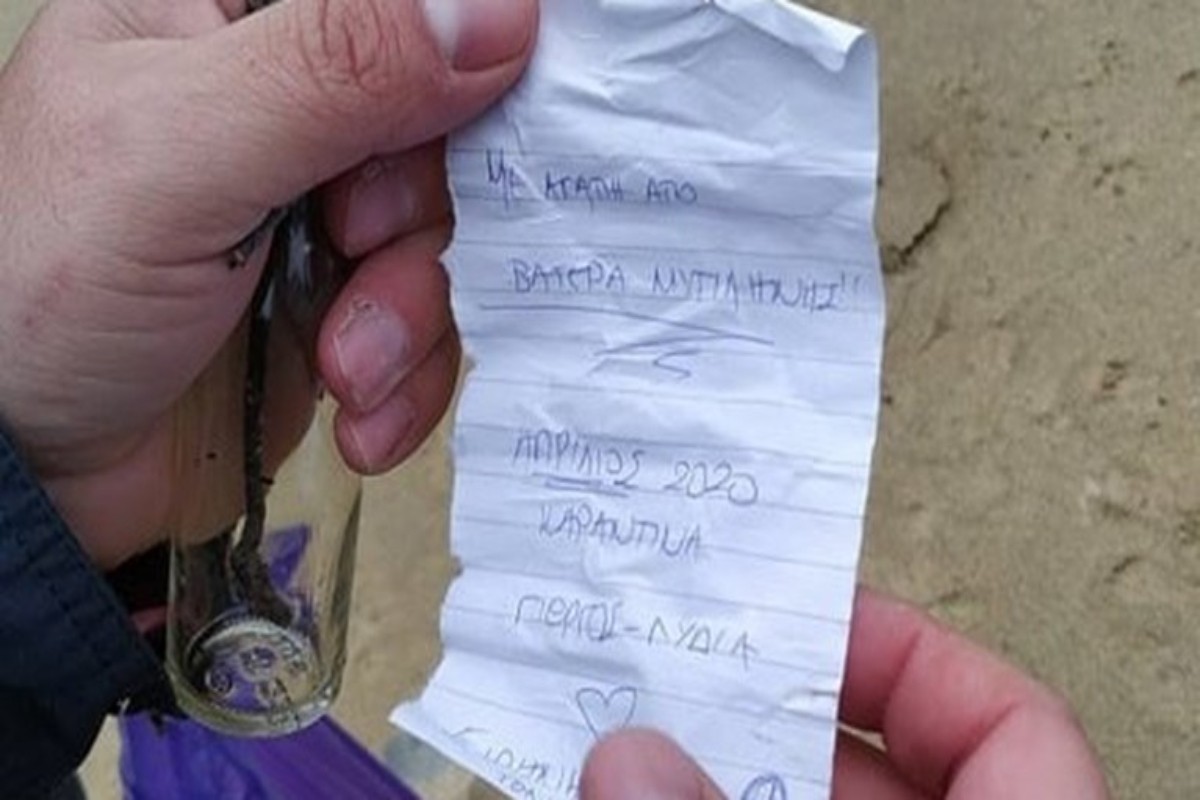 Με ΑΓΑΠΗ ΑΠΟ
ΒΑΤΕΡΑ ΜΥΤΙΛΗΝΗΣ!!
ΑΠΡΙΛΙΟΣ 2020
ΚΑΡΑΝΤΙΝΑ
ΓΙΩΡΓΟΣ-ΛΥΔΙΑ